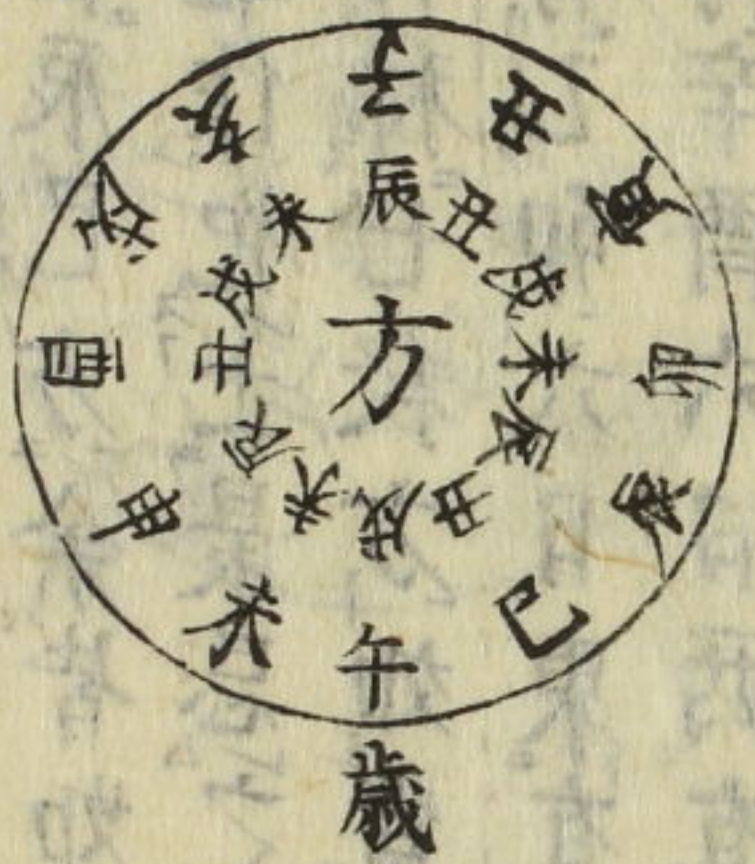 子丑寅卯辰巳午未申酉戌亥
辰丑戌未辰丑戌未辰丑戌未
方
歳